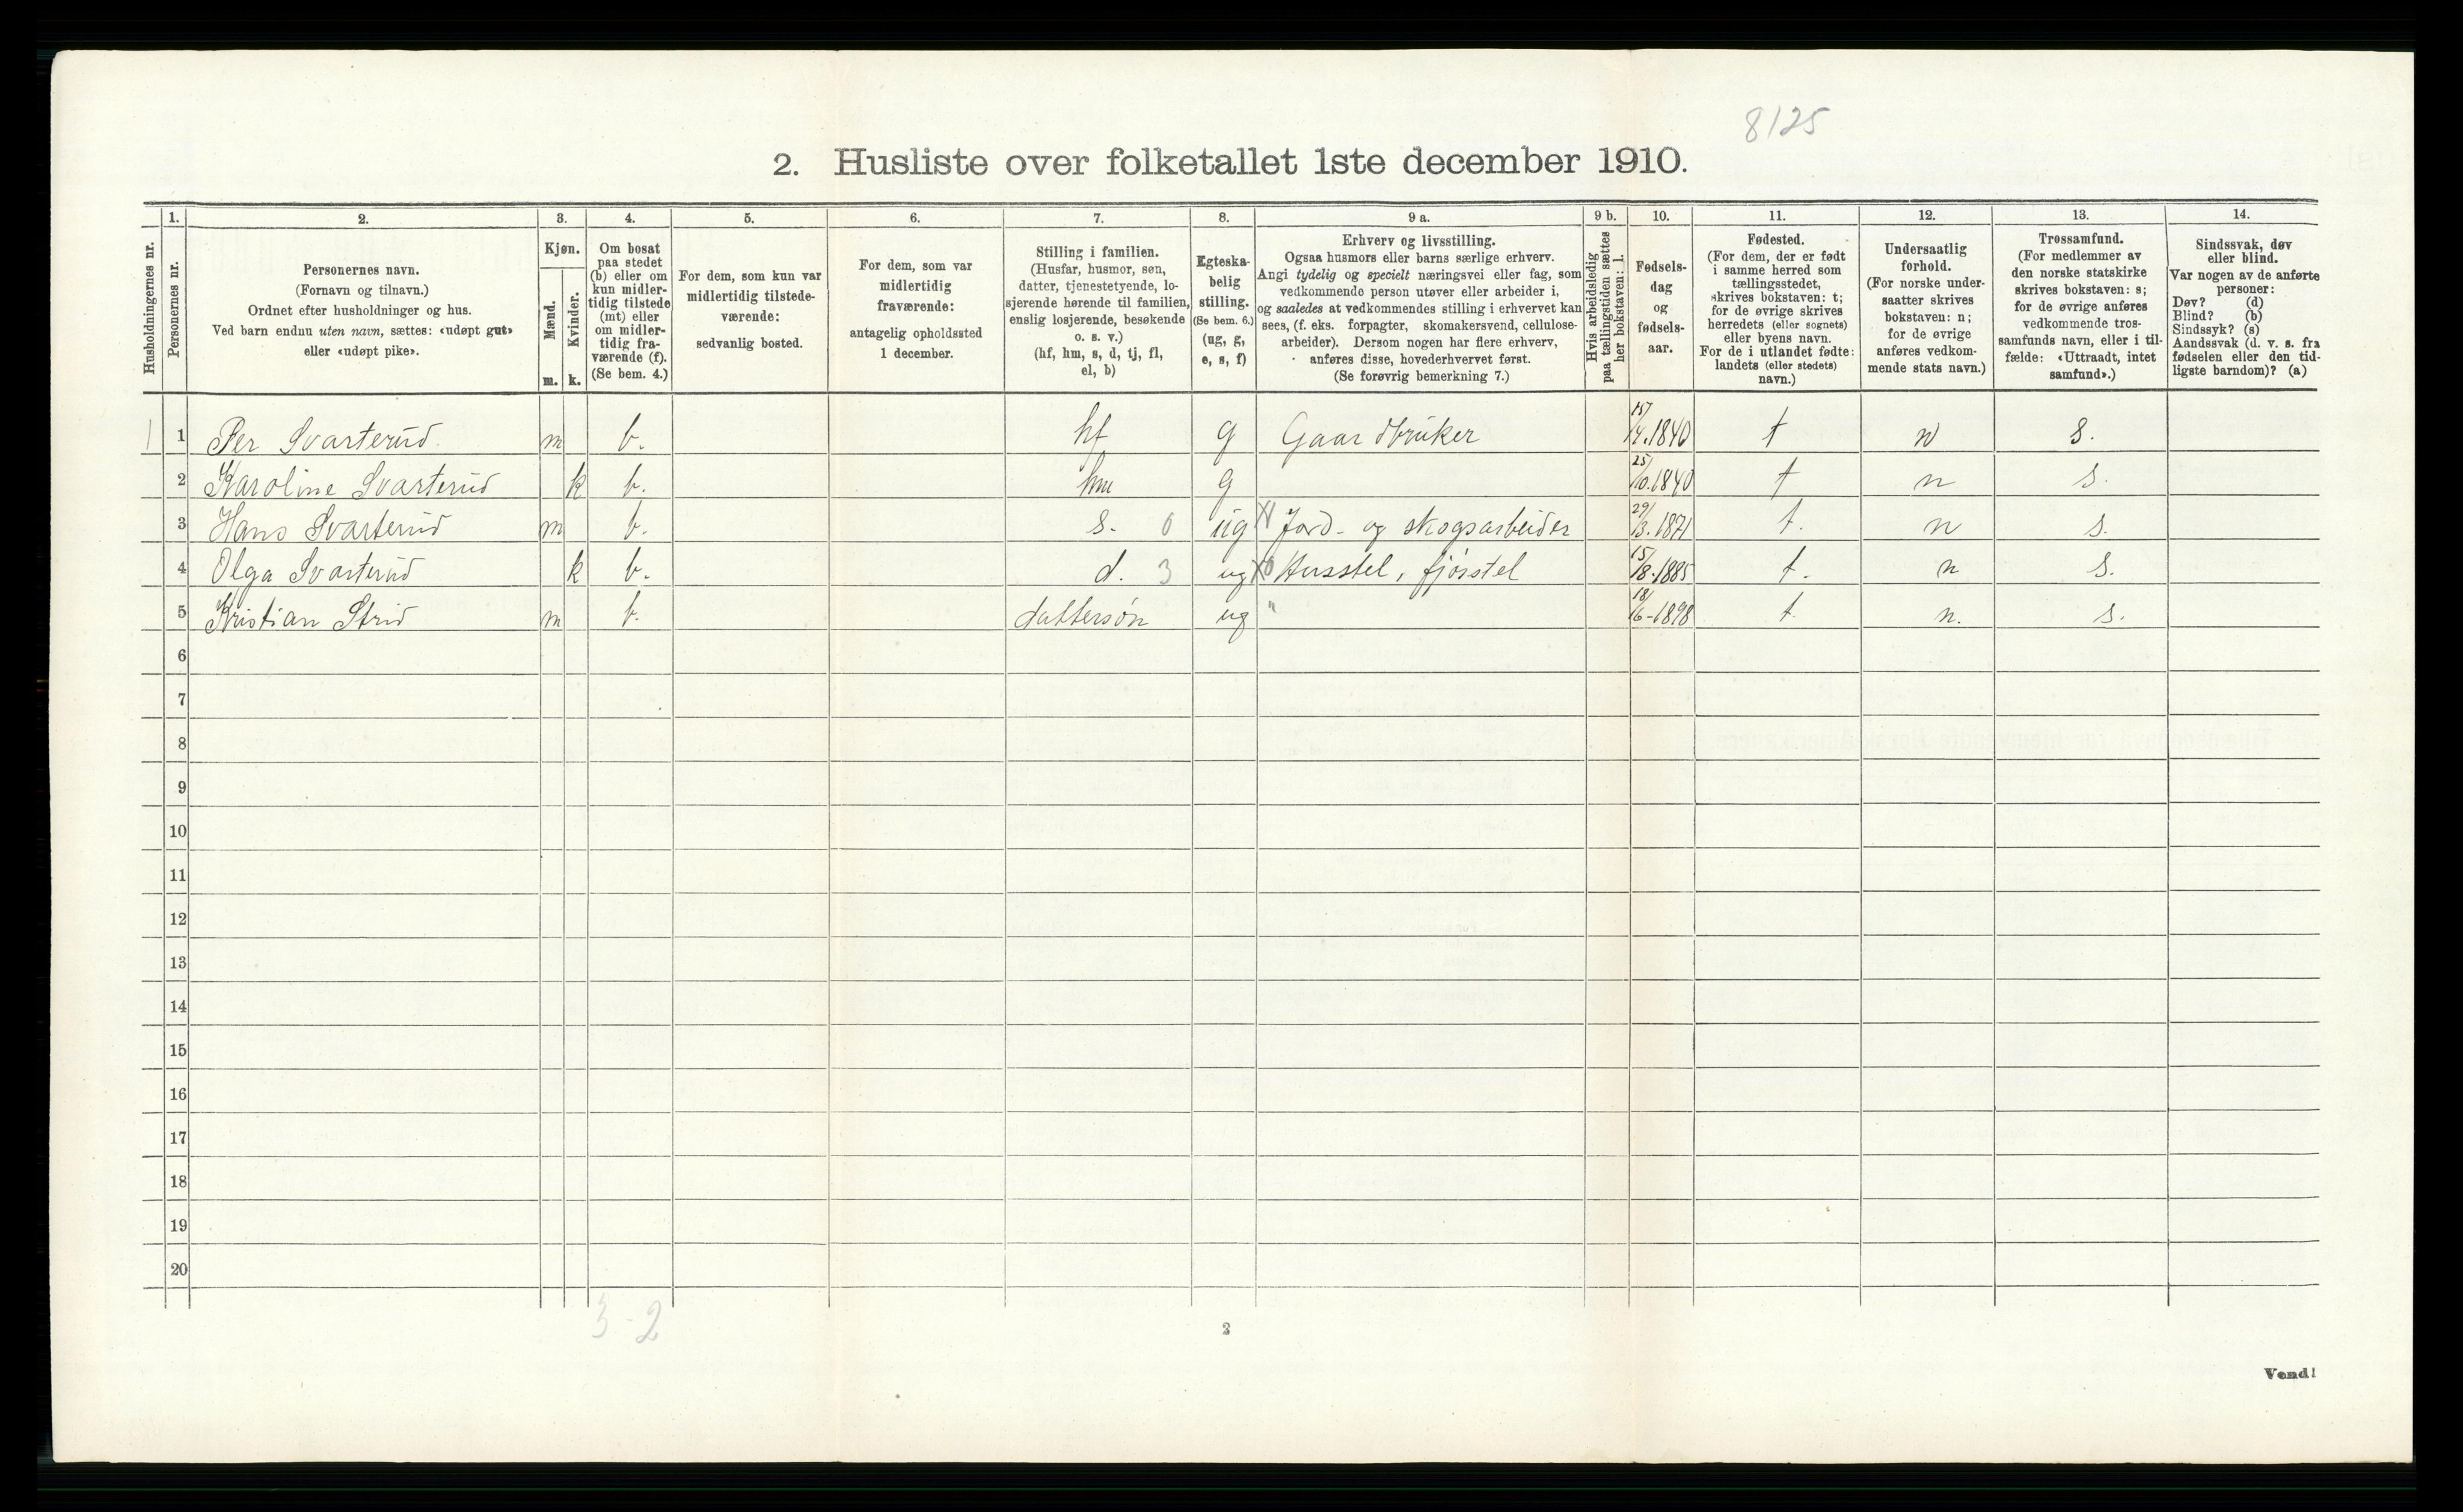 8125
2. Husliste over folketallet 1ste december 1910.
Husholdningernes nr.
1.
Personernes nr.
2.
Personernes navn.
(Fornavn og tilnavn.)
Ordnet efter husholdninger og hus.
Ved barn endnu uten navn, sættes: «udøpt gut»
eller «udøpt pike».
3.
Kjøn.
Mænd.
Kvinder.
m. k.
4.
Om bosat
paa stedet
(b) eller om
kun midler-
tidig tilstede
(mt) eller
om midler-
tidig fra-
værende (f).
(Se bem. 4.)
5.
For dem, som kun var
midlertidig tilstede-
værende:
sedvanlig bosted.
6.
For dem, som var
midlertidig
fraværende:
antagelig opholdssted
1 december.
7.
Stilling i familien.
(Husfar, husmor, søn,
datter, tjenestetyende, lo-
sjerende hørende til familien,
enslig losjerende, besøkende
o. s. v.)
(hf, hm, s, d, tj, fl,
el, b)
8.
Egteska-
belig
stilling.
(Se bem. 6.)
(ug, g,
e, s, f)
9 a.
Erhverv og livsstilling.
Ogsaa husmors eller barns særlige erhverv.
Angi tydelig og specielt næringsvei eller fag, som
vedkommende person utøver eller arbeider i,
og saaledes at vedkommendes stilling i erhvervet kan
sees, (f. eks. forpagter, skomakersvend, cellulose-
arbeider). Dersom nogen har flere erhverv,
anføres disse, hovederhvervet først.
(Se forøvrig bemerkning 7.)
9 b.
Hvis arbeidsledig
paa tællingstiden sættes
her bokstaven: l.
10.
Fødsels-
dag
og
fødsels-
aar.
11.
Fødested.
(For dem, der er født
i samme herred som
tællingsstedet,
skrives bokstaven: t;
for de øvrige skrives
herredets (eller sognets)
eller byens navn.
For de i utlandet fødte:
landets (eller stedets)
navn.)
12.
Undersaatlig
forhold.
(For norske under-
saatter skrives
bokstaven: n;
for de øvrige
anføres vedkom-
mende stats navn.)
13.
Trossamfund.
(For medlemmer av
den norske statskirke
skrives bokstaven: s;
for de øvrige anføres
vedkommende tros-
samfunds navn, eller i til-
fælde: «Uttraadt, intet
samfund».)
14.
Sindssvak, døv
eller blind.
Var nogen av de anførte
personer:
Døv? (d)
Blind? (b)
Sindssyk? (s)
Aandssvak (d. v. s. fra
fødselen eller den tid-
ligste barndom)? (a)
1 1 Per Svarterud. m b. hf g Gaardbruker 15/4.1840 t n s.
2 Karoline Svarterud k b. hm g 25/10.1840 t n s.
3 Hans Svarterud m b. s. 0 ug X Jord- og skogsarbeider 29/3.1871 t. n s.
4 Olga Svarterud k b. d. 3 ug X0 Husstel, fjøsstel 15/8.1885 t. n s.
5 Kristian Strid m b. dattersøn ug " 18/6-1898 t. n. s.
6
7
8
9
10
11
12
13
14
15
16
17
18
19
20
3-2
2
Vend!